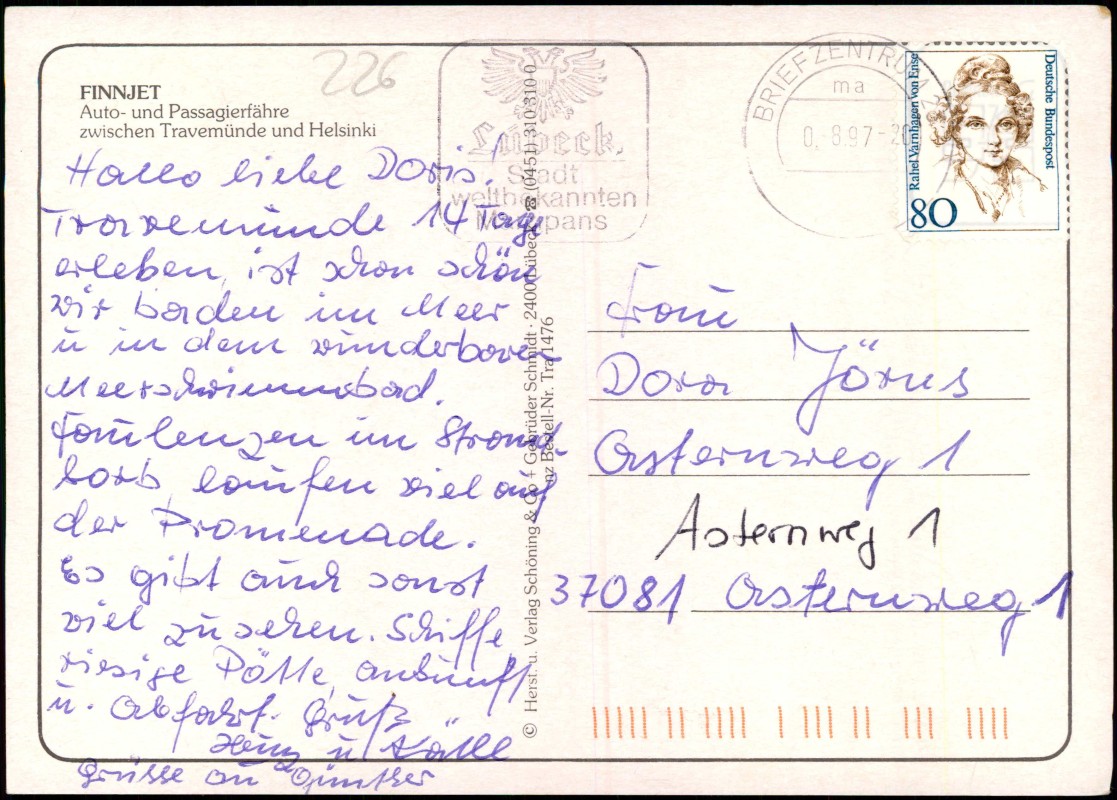 226
FINNJET
Auto- und Passagierfähre
zwischen Travemünde und Helsinki
Hallo liebe Doris!
Travemünde 14 Tage
erleben, ist schon schön
wir baden im Meer
u in dem wunderbaren
Meerschwimmbad.
Faulenzen im Strand
korb, laufen viel auf
der Promenade.
Es gibt auch sonst
viel zu sehen. Schiffe,
riesige Pötte, ankunft
u. Abfahrt. Gruß
Heinz u Kalle
Grüsse an Günther
© Herst. u. Verlag Schöning & Co + Gebrüder Schmidt · 2400 Lübeck ☎ (0451) 310310-0
nz Bestell-Nr. Tra 1476
Lübeck.
Stadt
weltbekannten
Marzipans
BRIEFZENTRUM 2
ma
0.-8.97-20
Rahel Varnhagen von Ense
Deutsche Bundespost
80
Frau
Dora Jörns
Asternweg 1
Asternweg 1
37081 Asternweg 1